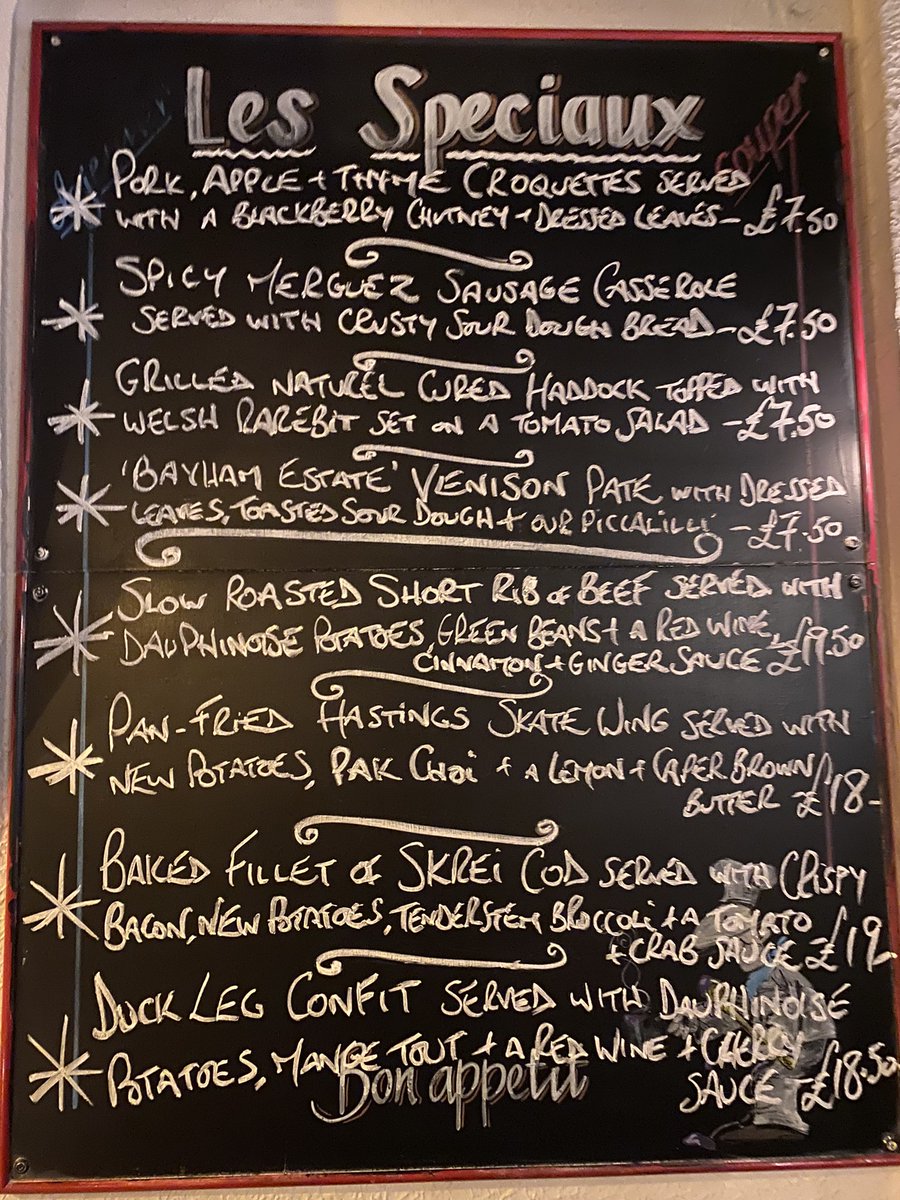 Les Speciaux
Souper
PORK, APPLE + THYME CROQUETTES SERVED
WITH A BLACKBERRY CHUTNEY + DRESSED LEAVES - £7.50
SPICY MERGUEZ SAUSAGE CASSEROLE
SERVED WITH CRUSTY SOUR DOUGH BREAD - £7.50
GRILLED NATUREL CURED HADDOCK TOPPED WITH
WELSH RAREBIT SET ON A TOMATO SALAD - £7.50
'BAYHAM ESTATE' VIENISON PATE WITH DRESSED
LEAVES, TOASTED SOUR DOUGH + OUR PICCALILLI - £7.50
SLOW ROASTED SHORT RIB OF BEEF SERVED WITH
DAUPHINOISE POTATOES, GREEN BEANS + A RED WINE,
CINNAMON + GINGER SAUCE £19.50
PAN-FRIED HASTINGS SKATE WING SERVED WITH
NEW POTATOES, PAK CHOI + A LEMON + CAPER BROWN
BUTTER - £18-
BAKED FILLET OF SKREI COD SERVED WITH CRISPY
BACON, NEW POTATOES, TENDERSTEM BROCCOLI + A TOMATO
+ CRAB SAUCE - £19-
DUCK LEG CONFIT SERVED WITH DAUPHINOISE
POTATOES, MANGE TOUT + A RED WINE + CHERRY
SAUCE - £18.50
Bon appetit